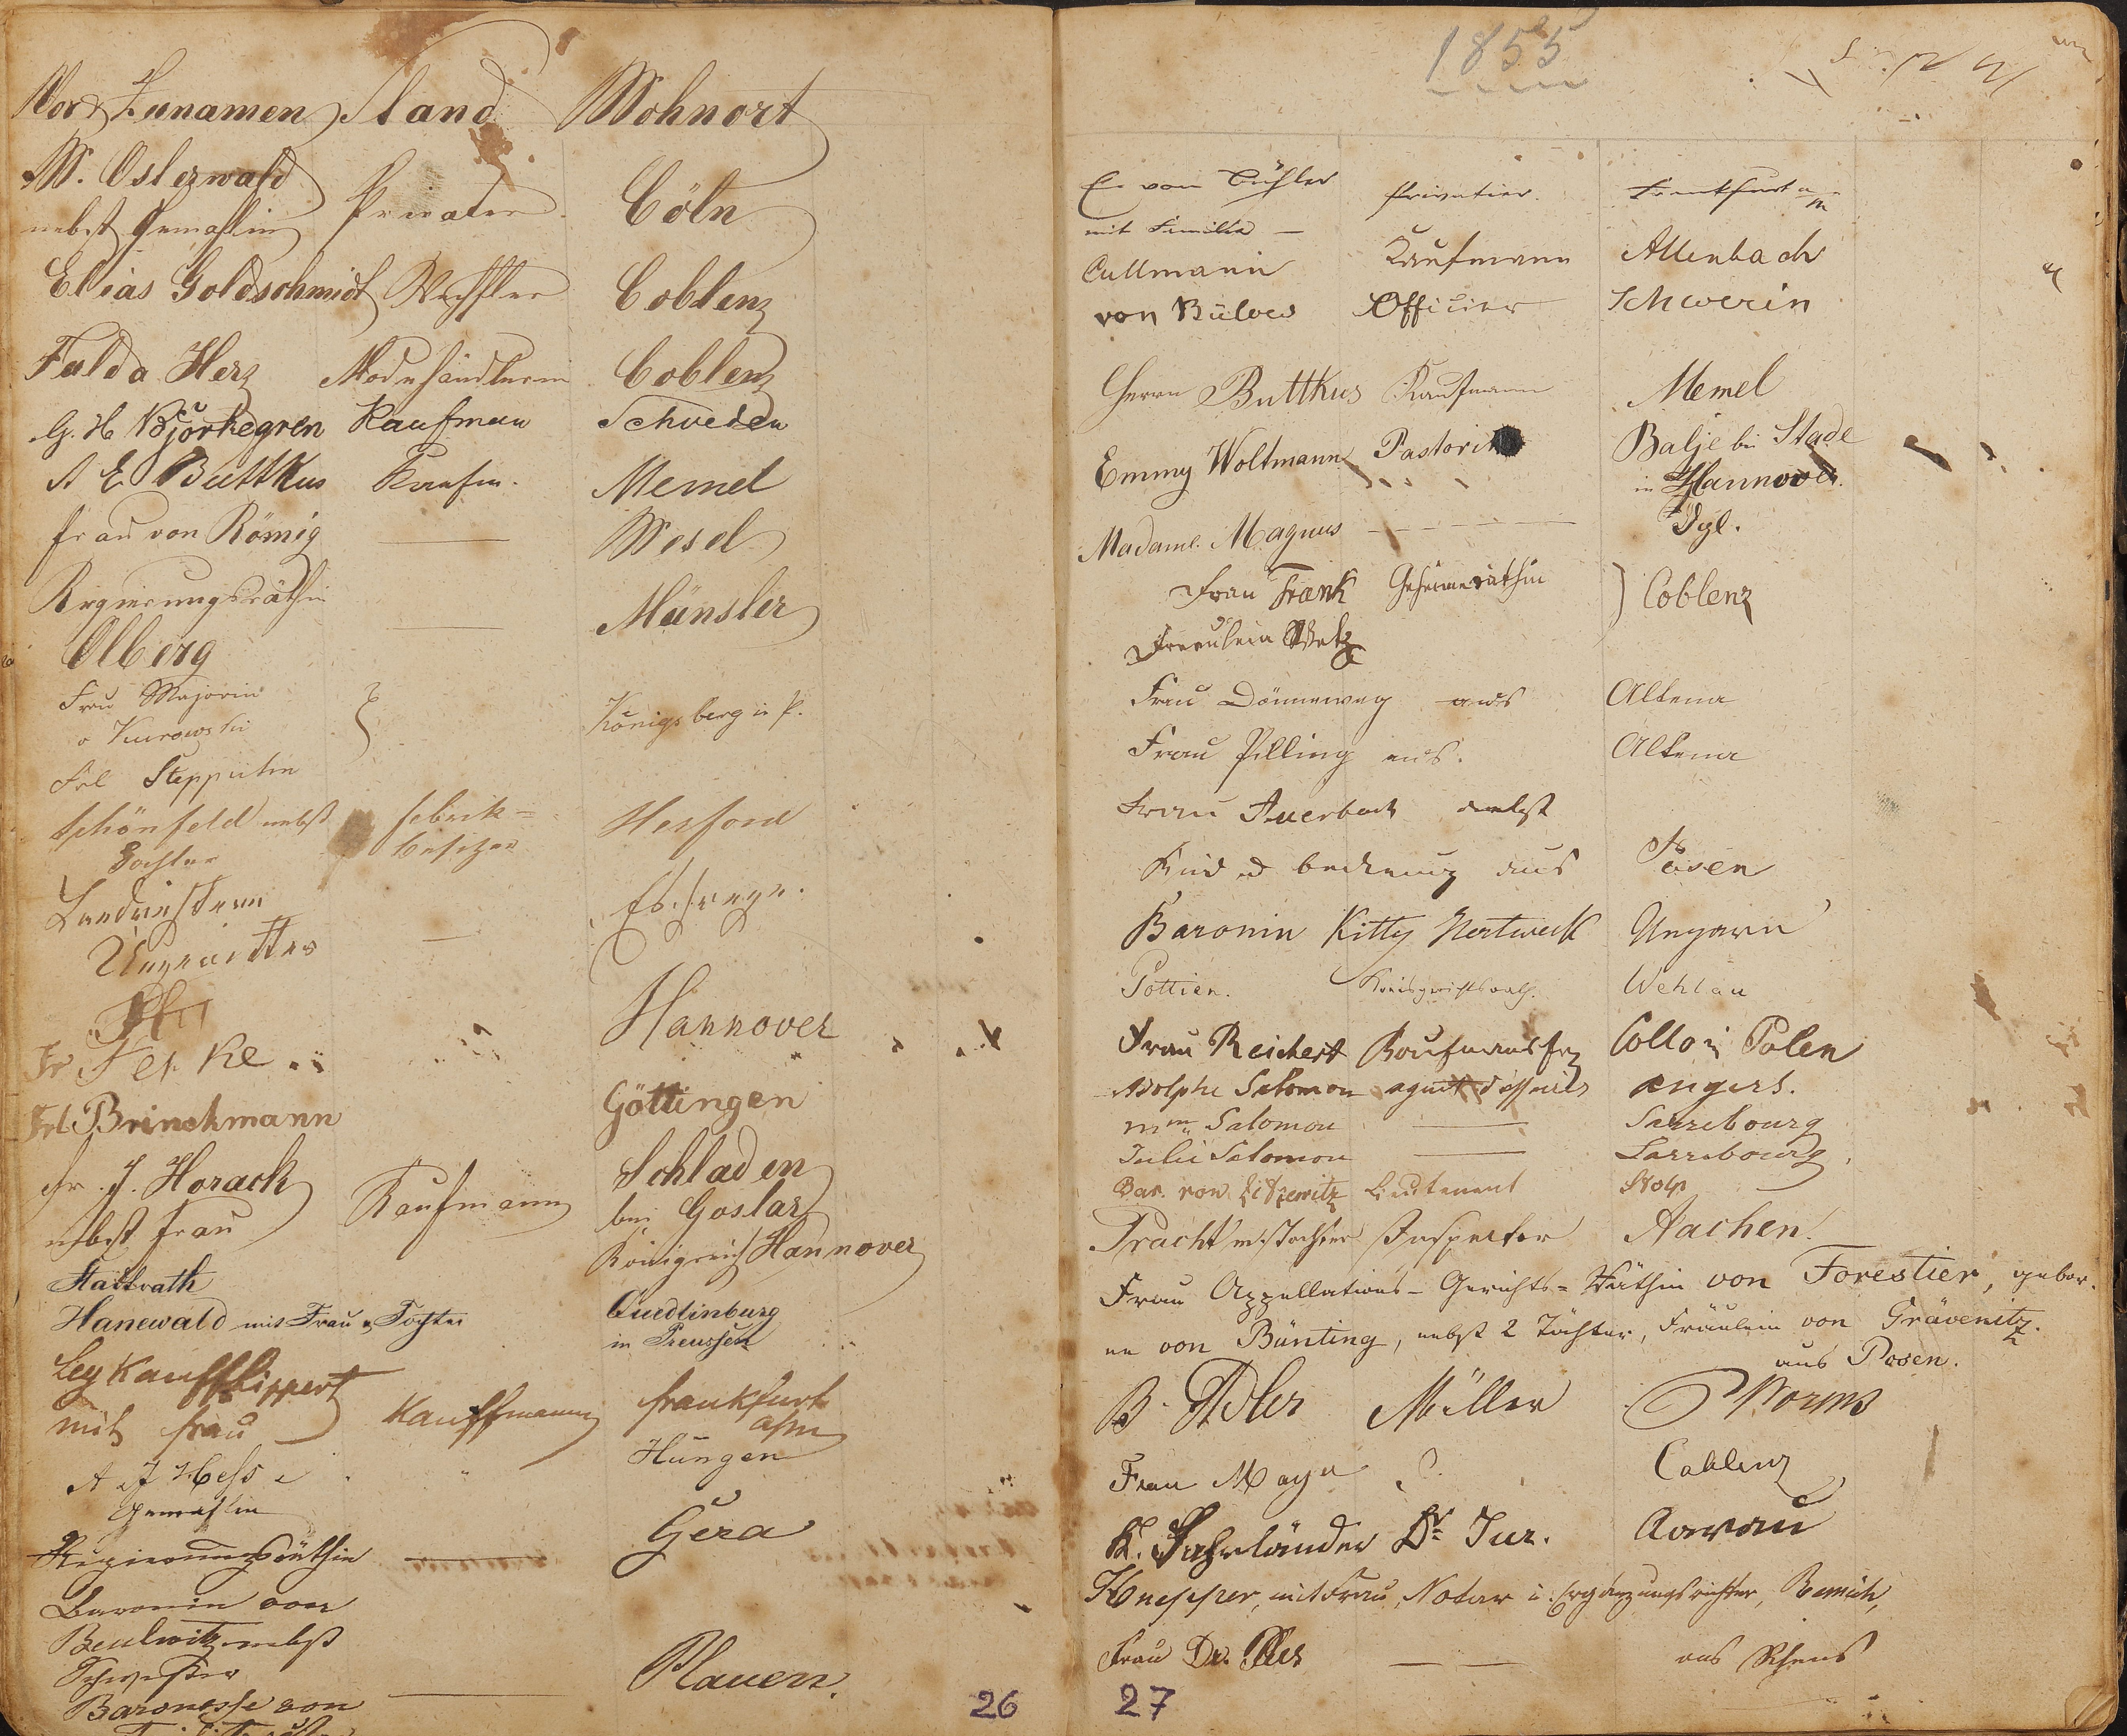 Vor & Zunamen Stand Wohnort
W. Osterwald
nebst Gemahlin Privater Cöln
Elias Goldschmidt Wechsler Coblenz
Fulda Herz Modehändlerin Coblenz
G. H Björkegren Kaufman Schweden
A E Buttkus Kaufm. Memel
Frau von Römig Wesel
Regierungsräthin
Olberg Münster
Frau Majorin
v Kurowski Königsberg i. P.
Frl Steppuhn
Schönfeld nebst Fabrik=
Tochter besitzer Herford
Eschwege.
Hannover
Fr
Frl. Brinckmann Göttingen
Hr. J. Horack Kaufmann Schladen
nebst Frau bei Goslar
Königreich Hannover
Stadtrath
Hanewald mit Frau u. Tochter Quedlinburg
in Preussen
Lippert
mit Frau Kauffmann Frankfurt
a/m
A J Hesse Hungen
Gemahlin
Regierungsräthin Gera
Baronin von
Beulwitz nebst
Schwester
Baronesse von Plauen.
26
1855
von Privatier. Frankfurt a
mit Familie M
Cullmann Kaufmann Allenbach
von Bülow Officier Schwerin
Herrn Buttkus Kaufmann Memel
Emmy Woltmann Pastorin Balje bei Stade
in Hannover.
Madame. Magnus Dgl.
Frau Frank Geheimeräthin Coblenz
Fräulein
Frau Dönneweg aus Altena
Frau Pilling aus. Altena
Frau Auerbach nebst
Kind u bedienung aus Posen
Baronin Kitty Hertweck Ungarn
Pottien. Kreisgerichtsrath. Wehlau
Frau Reichert Kaufmansfr Collo in Polen
Adolphe Salomon agent d'affaires angers.
Mme Salomon Sarrebourg
Julie Salomon Sarrebourg
Bar. von Zitzewitz Lieutenant Stolp
Pracht m. Tochter Inspector Aachen.
Frau Appellations-Gerichts-Räthin von Forestier, gebor.
ne von Bünting, nebst 2 Töchter, Fräulein von Grävenitz.
aus Posen.
B. Adler Müller Worms
Frau Mayer Coblenz
K. Fahrländer Dr. Jur. Aarau
Knepper, mit Frau, Notar u. Ergänzungsrichter, Remich,
Frau Dr. aus Rhens
27